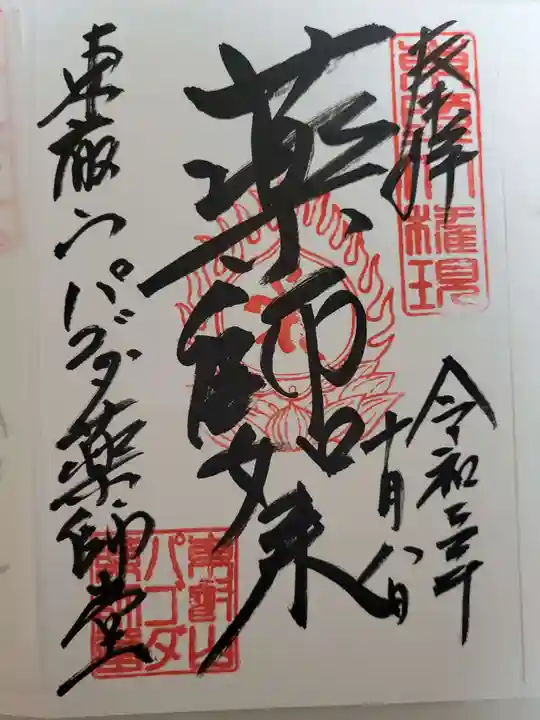 奉拝
權現
令和三年
十月八日
薬師如来
東叡山パゴダ薬師堂
東叡山
パゴダ
薬師堂